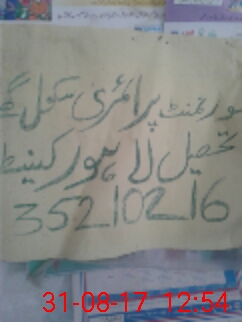 ورنمنٹ پرائمری سکول گ
تحصیل لاہور کینٹ
35210216
31-08-17 12:54